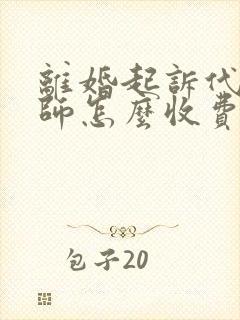 離婚起訴代
師怎麼收費
包子20